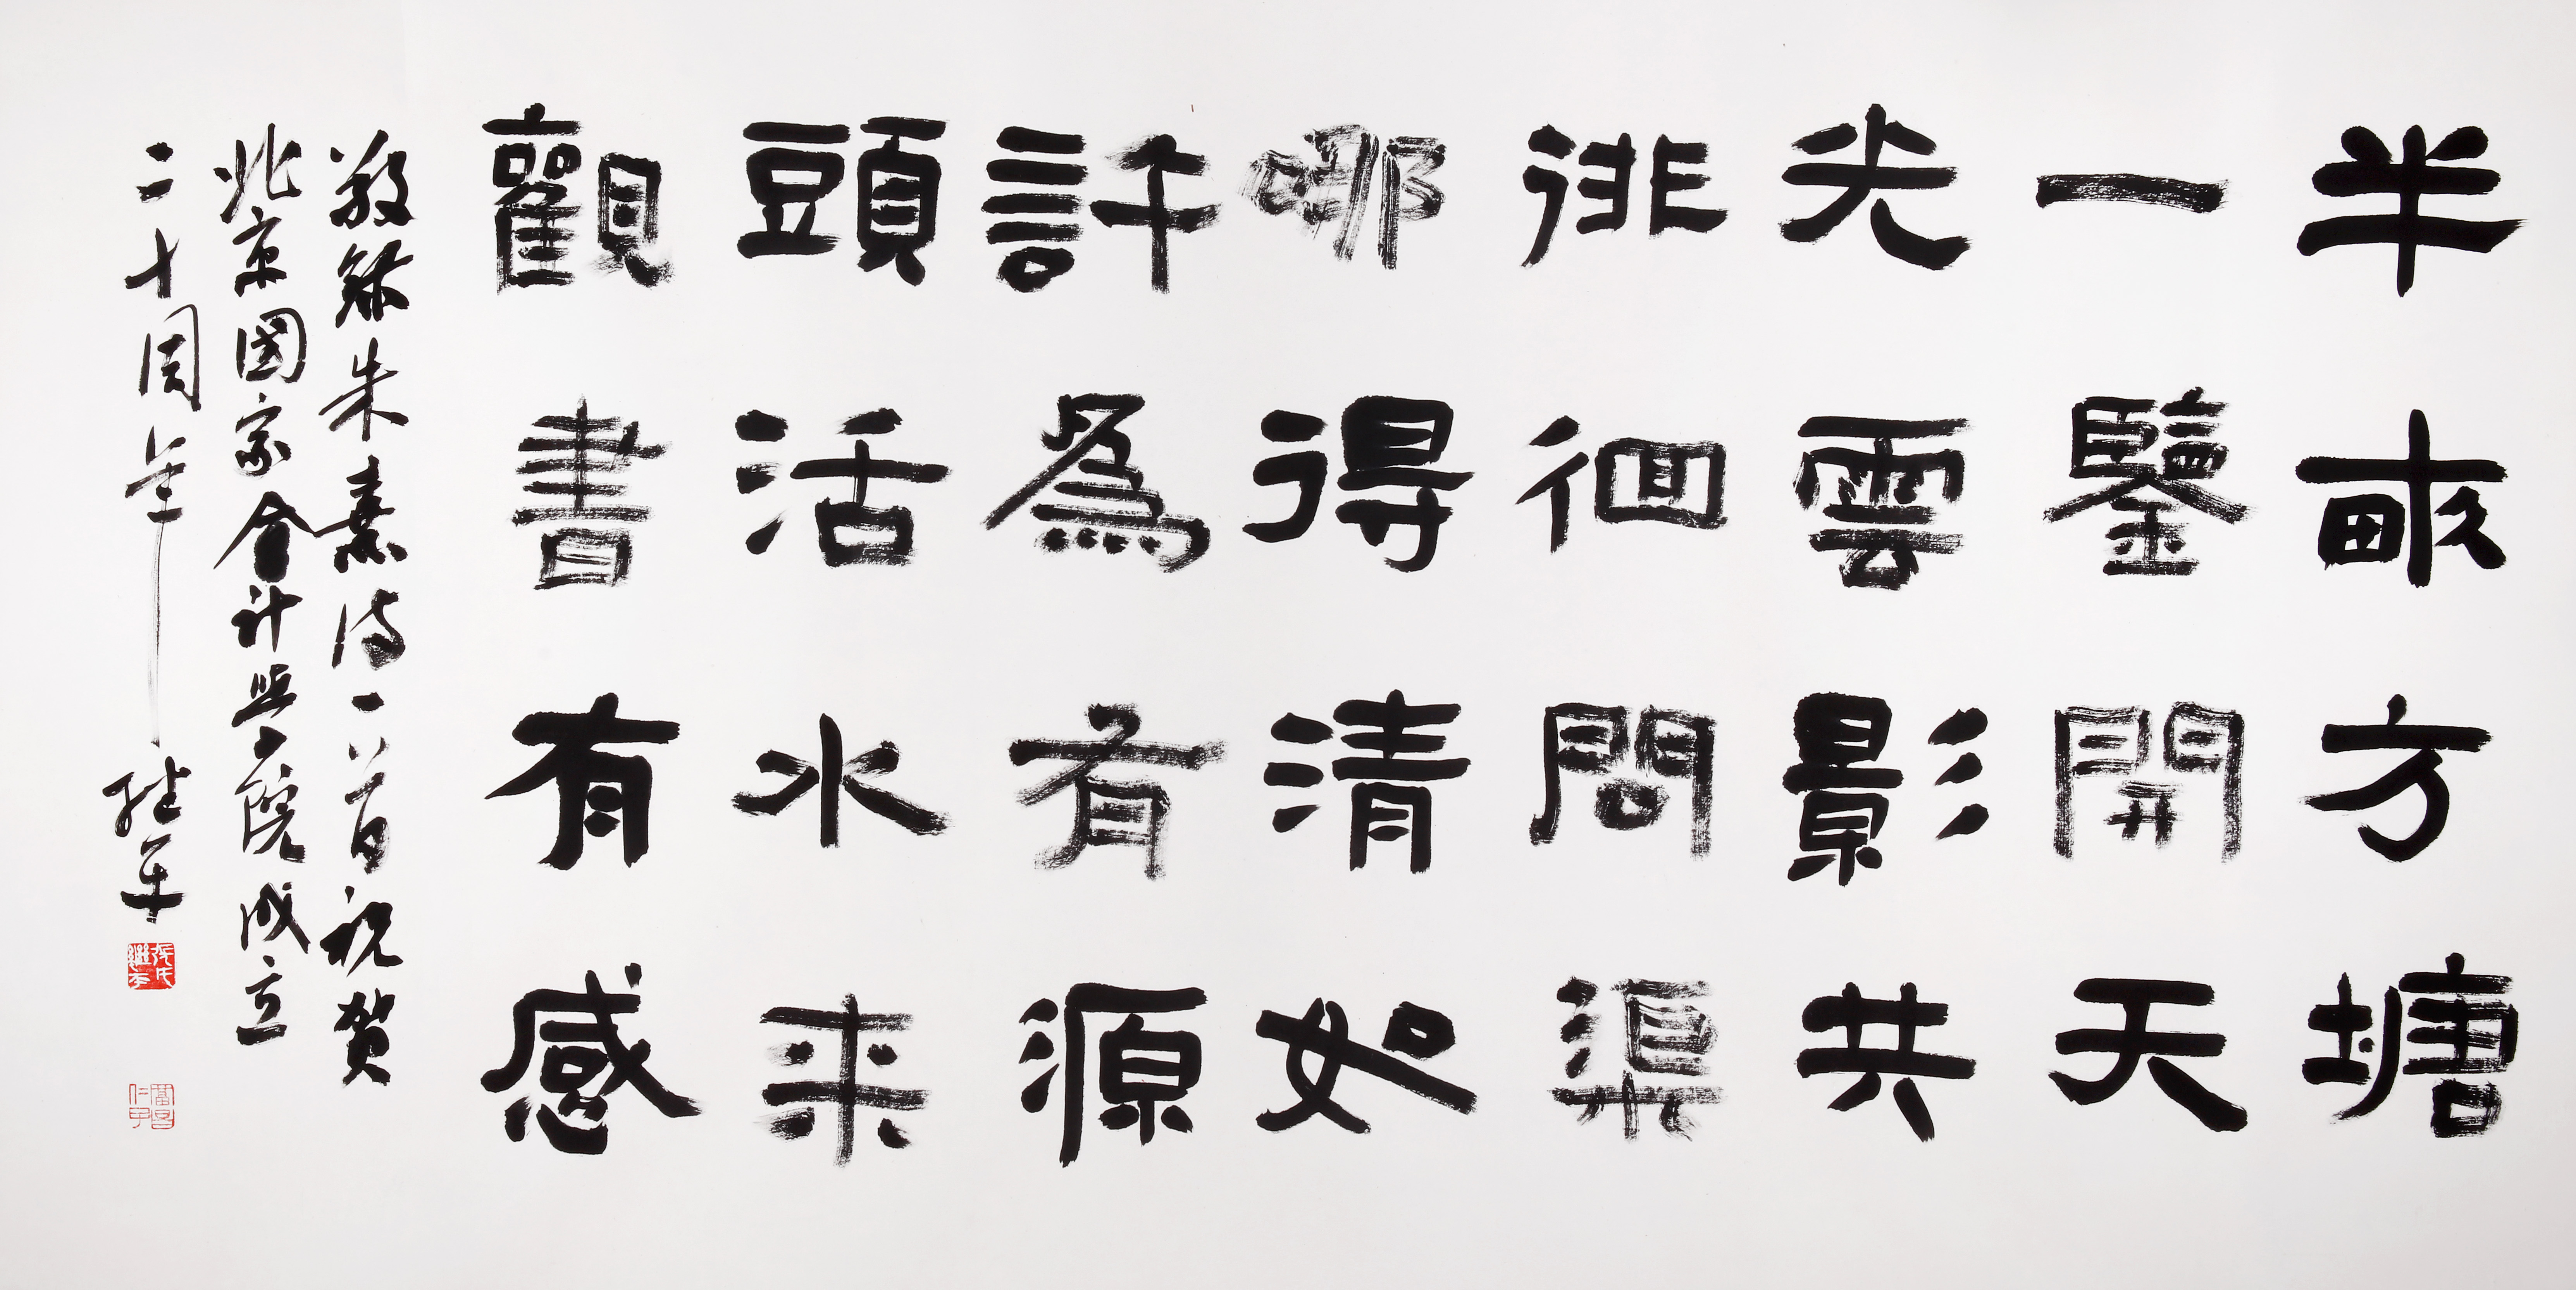 半畝方塘
一鑒開天
光雲影共
徘徊問渠
哪得清如
許為有源
頭活水来
觀書有感
敬錄朱熹诗一首祝贺
北京國家会计学院成立
二十周年 继平